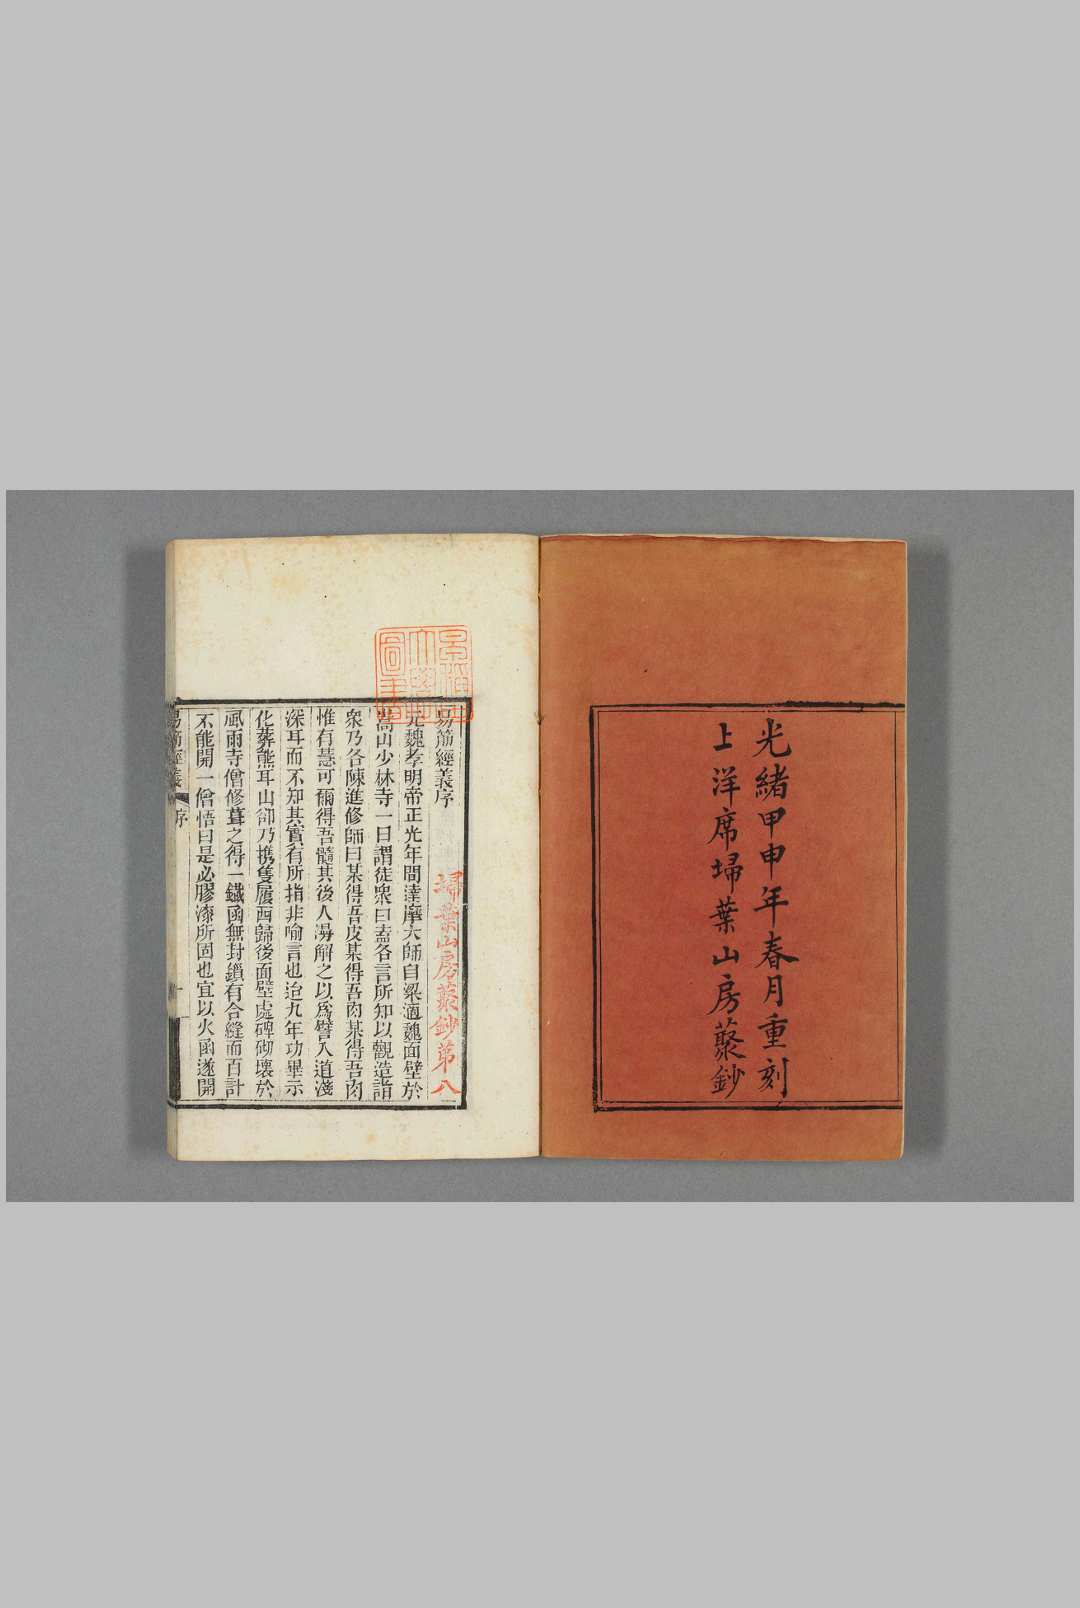 光緒甲申年春月重刻
上洋席埽葉山房藂鈔
易筋經義序
埽葉山房藂鈔第八
元魏孝明帝正光年間達摩大師自梁適魏面壁於
嵩山少林寺一日謂徒衆曰盍各言所知以觀造詣
衆乃各陳進修師曰某得吾皮某得吾肉某得吾肉
惟有慧可爾得吾髓其後人漫解之以爲譬入道淺
深耳而不知其實有所指非喻言也迨九年功畢示
化葬熊耳山卻乃携隻履西歸後面壁處碑砌壞於
風雨寺僧修葺之得一鐵函無封鎖有合縫而百計
不能開一僧悟曰是必膠漆所固也宜以火函遂開
易筋經義
序
一